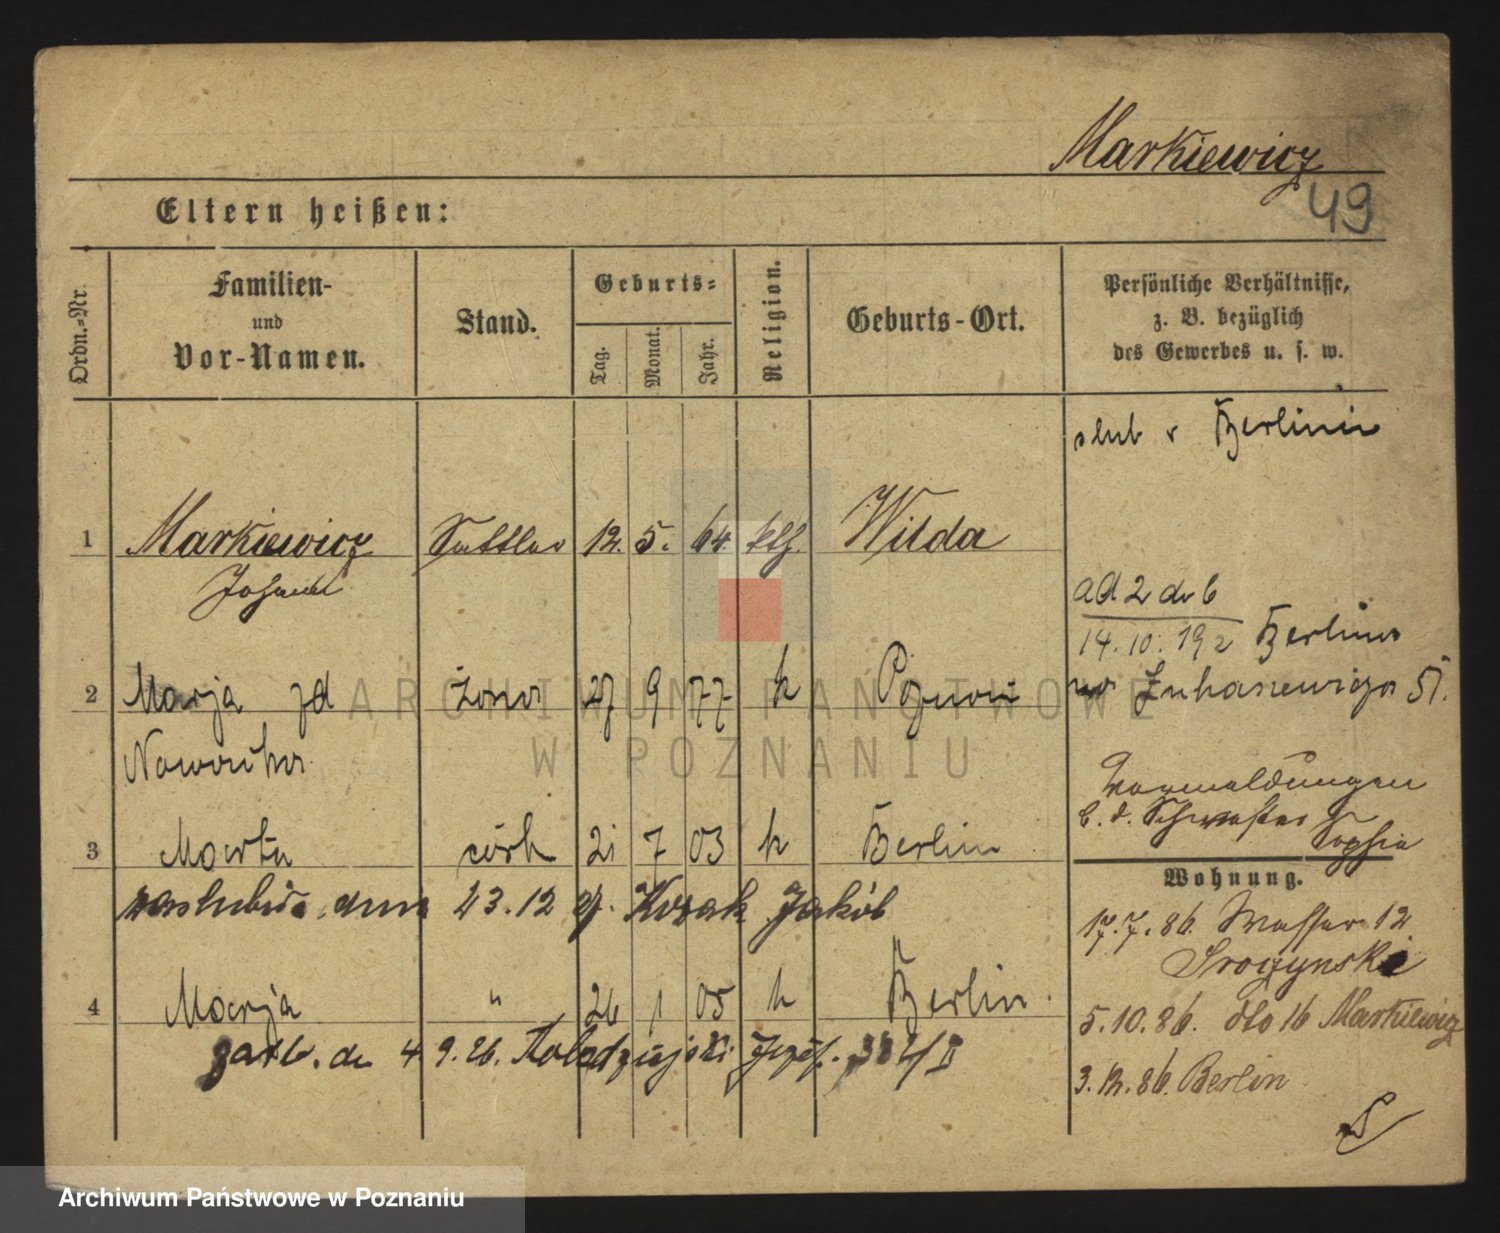 Markiewicz
49
Eltern heißen:
Ordn.-Nr.
Familien-
und
Vor-Namen.
Stand.
Geburts-
Tag.
Monat.
Jahr.
Religion.
Geburts-Ort.
Persönliche Verhältnisse,
z. B. bezüglich
des Gewerbes u. s. w.
ślub w Berlinie
1 Markiewicz Sattler 12. 5. 64. kth. Wilda
Johann
ad 2 do 6
14. 10. 192 Berlina
2 Marja zd żona 27 9 77 k Poznań
Łukaszewicza 51.
Nowacka
Vormeldungen
b. d. Schwester
Sophia
3 Marta córk 21 7 03 k Berlin
Wohnung.
23.12 Kozak Jakób
17.7.86. Wasser 12
Srozynski
4 Marja " 26 1 05 k Berlin.
5.10.86. dto 16 Markiewicz
4 9.26. Józef.
3.12.86. Berlin
ARCHIWUM PAŃSTWOWE
W POZNANIU
Archiwum Państwowe w Poznaniu